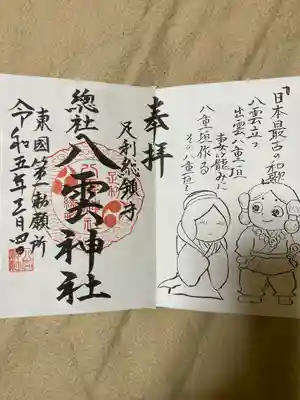 『日本最古の和歌』
八雲立つ
出雲八重垣
妻籠みに
八重垣作る
その八重垣を
奉拝
足利総鎮守
總社八雲神社
東國第一勅願所
令和五年三月四日